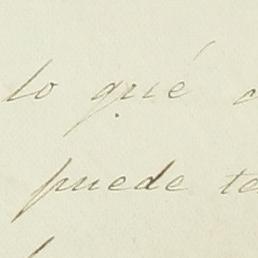 lo qué
puede te